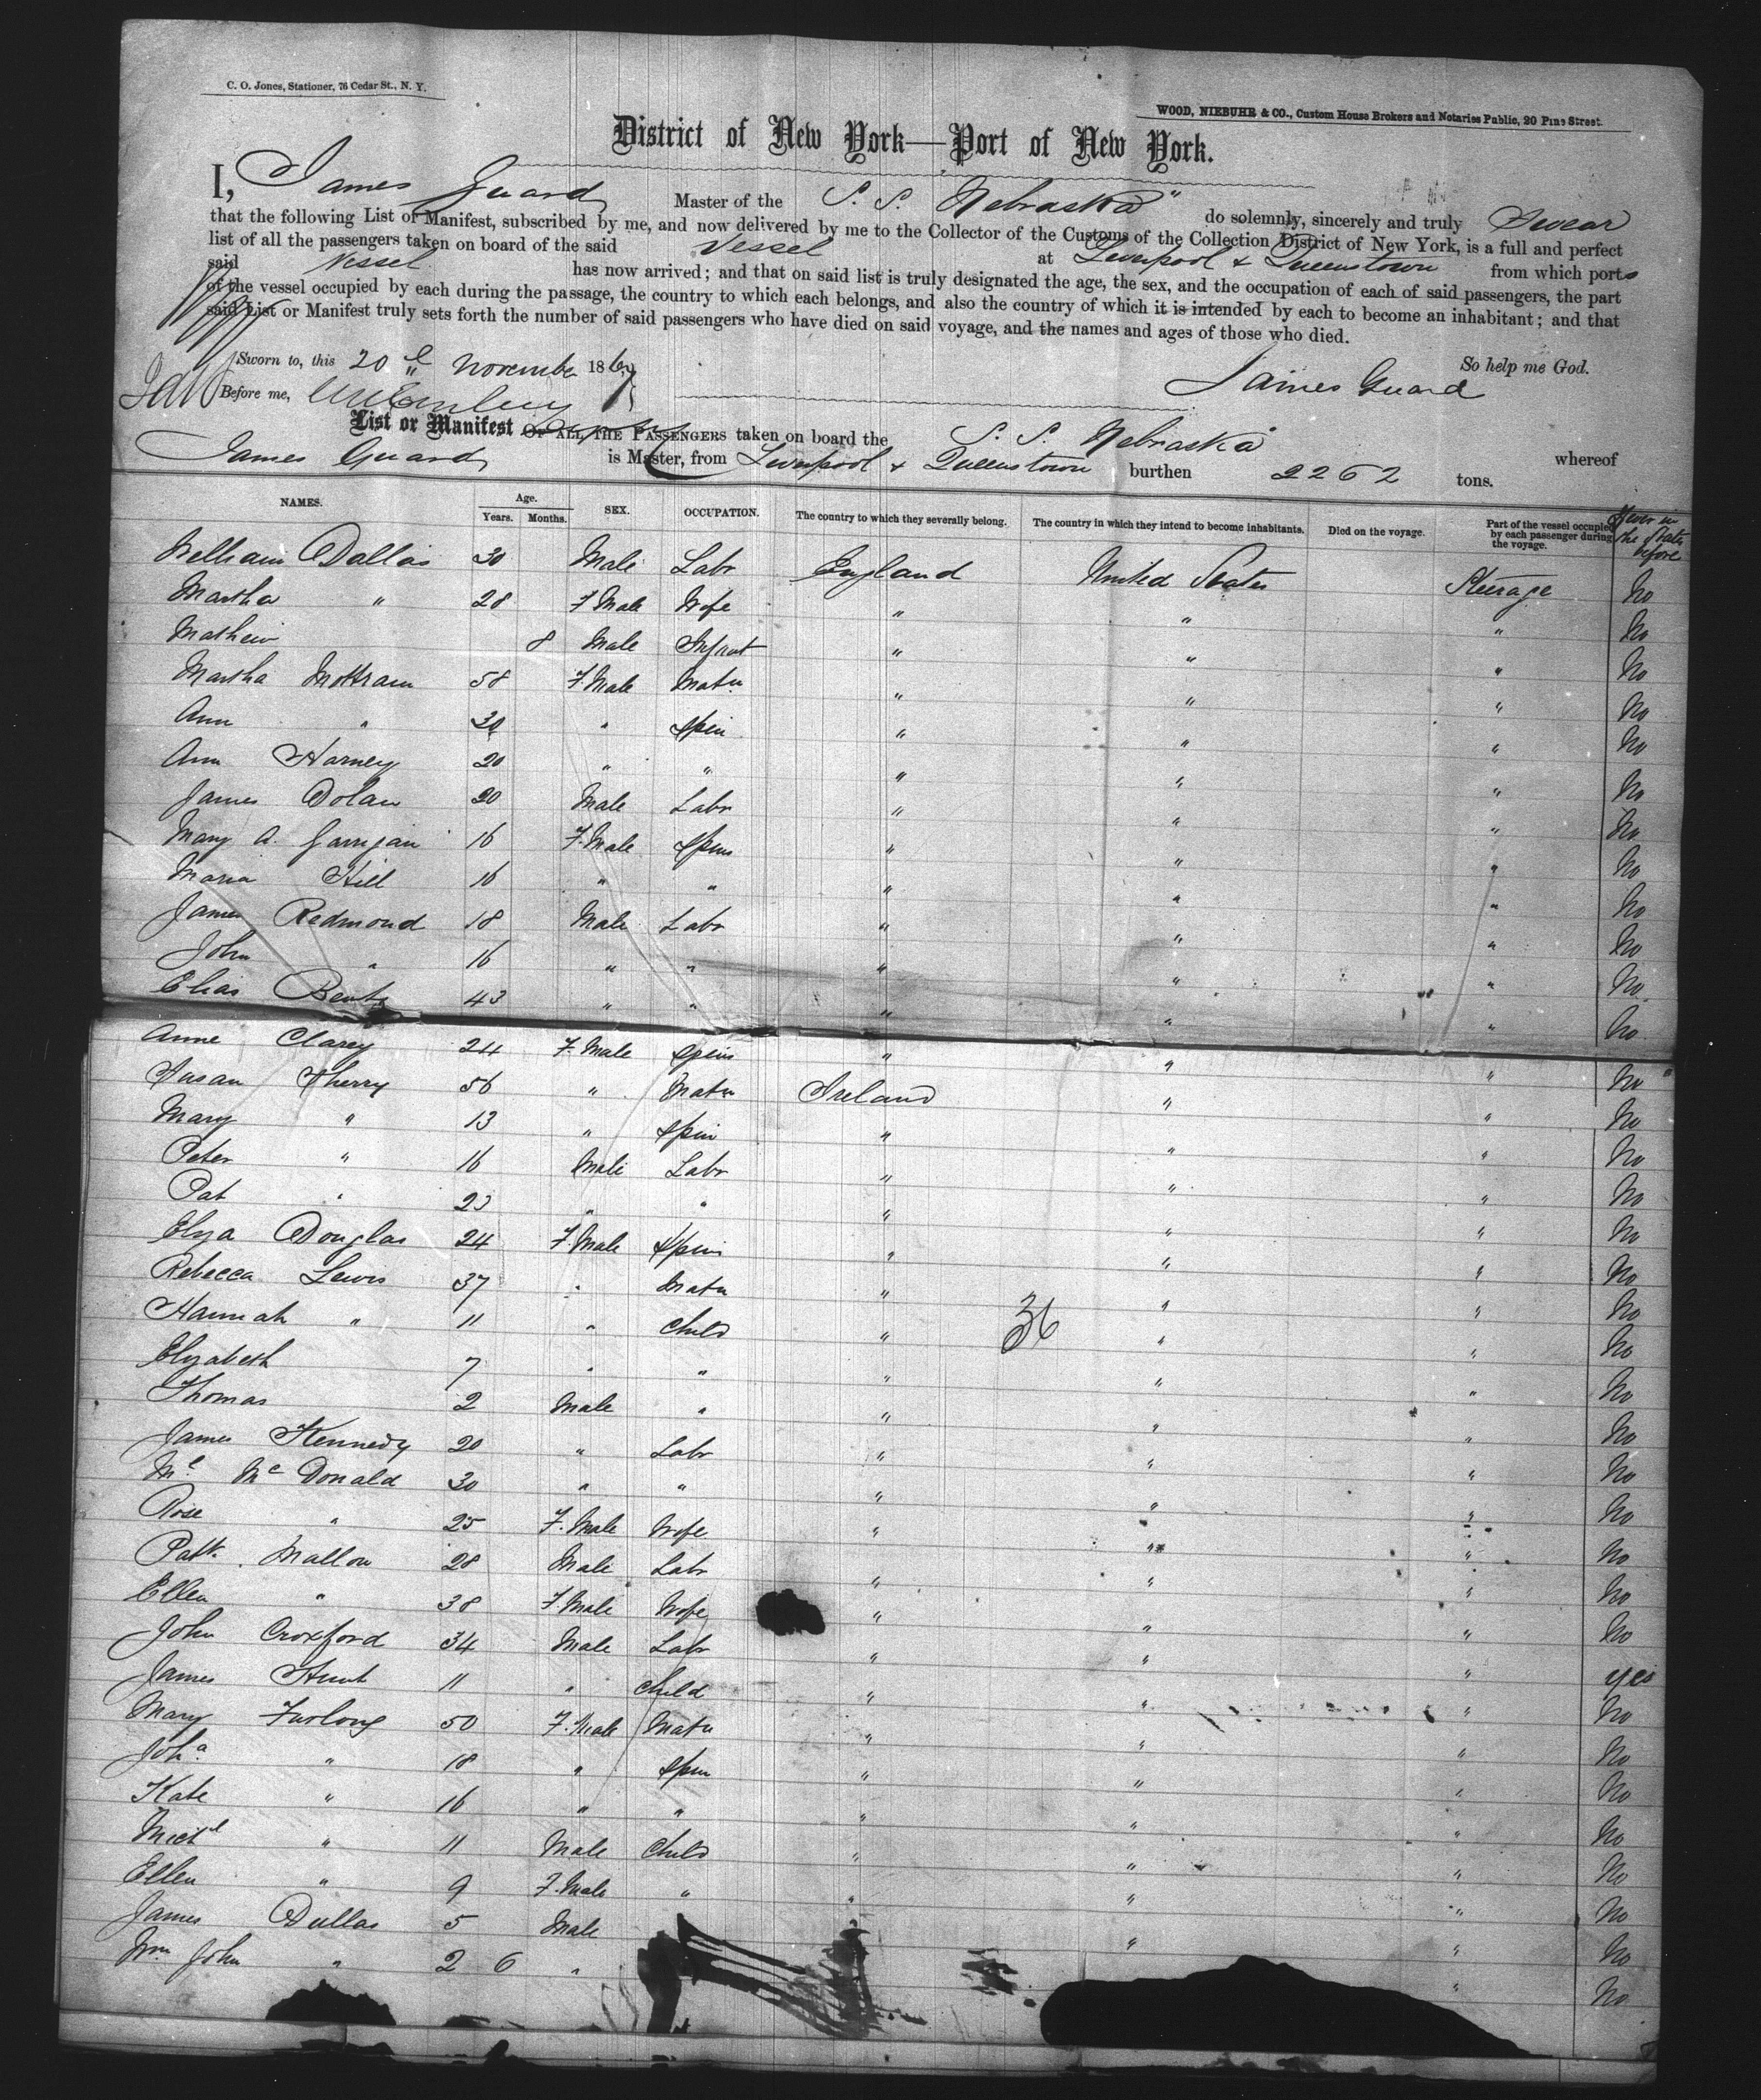 C. O. Jones, Stationer, 76 Cedar St., N. Y.
WOOD, NIEBUHR & CO., Custom House Brokers and Notaries Public, 20 Pine Street.
District of New York—Port of New York.
I, James Guard Master of the S. S. Nebraska" do solemnly, sincerely and truly Swear
that the following List or Manifest, subscribed by me, and now delivered by me to the Collector of the Customs of the Collection District of New York, is a full and perfect
list of all the passengers taken on board of the said Vessel at Liverpool & Queenstown from which ports
said Vessel has now arrived; and that on said list is truly designated the age, the sex, and the occupation of each of said passengers, the part
of the vessel occupied by each during the passage, the country to which each belongs, and also the country of which it is intended by each to become an inhabitant; and that
said List or Manifest truly sets forth the number of said passengers who have died on said voyage, and the names and ages of those who died.
So help me God.
Sworn to, this 20th November 1867
James Guard
Before me,
List or Manifest OF ALL THE PASSENGERS taken on board the S. S. Nebraska whereof
James Guard is Master, from Liverpool & Queenstown burthen 2262 tons.
NAMES. Age. Years. Months. SEX. OCCUPATION. The country to which they severally belong. The country in which they intend to become inhabitants. Died on the voyage. Part of the vessel occupied by each passenger during the voyage. Ever in the States before
William Dallas 30 Male Labr England United States Steerage No
Martha " 28 F Male Wife " " " No
Mathew 8 Male Infant " " " No
Martha Mottram 58 F. Male Matn " " " No
Ann " 30 " Spin " " " No
Ann Harney 20 " " " " " No
James Dolan 20 Male Labr " " " No
Mary A. Garrigan 16 F. Male Spins " " " No
Maria Hill 16 " " " " " No
James Redmond 18 Male Labr " " " No
John " 16 " " " " " No
Elias 43 " " " " " No
Anne Clarey 24 F. Male Spins " " " No
Susan Sherry 56 " Matn Ireland " " No
Mary " 13 " Spin " " " No
Peter " 16 Male Labr " " " No
Pat " 23 " " " " " No
Elyza Douglas 24 F. Male Spins " " " No
Rebecca Lewis 37 " Matn " " " No
Hannah " 11 " Child " 36 " " No
Elyzabeth 7 " " " " " No
Thomas 2 Male " " " " No
James Kennedy 20 " Labr " " " No
Ml. McDonald 30 " " " " " No
Rose " 25 F. Male Wife " " " No
Patk. Mallon 28 Male Labr " " " No
Ellen " 38 F. Male Wife " " " No
John Croxford 34 Male Labr " " " yes
James Hunt 11 " Child " " " No
Mary Furlong 50 F. Male Matn " " " No
Joha " 18 " Spin " " " No
Kate " 16 " " " " " No
Michl " 11 Male Child " " " No
Ellen " 9 F. Male " " " " No
James Dullas 5 Male " " No
Wm John " 2 6 " " No